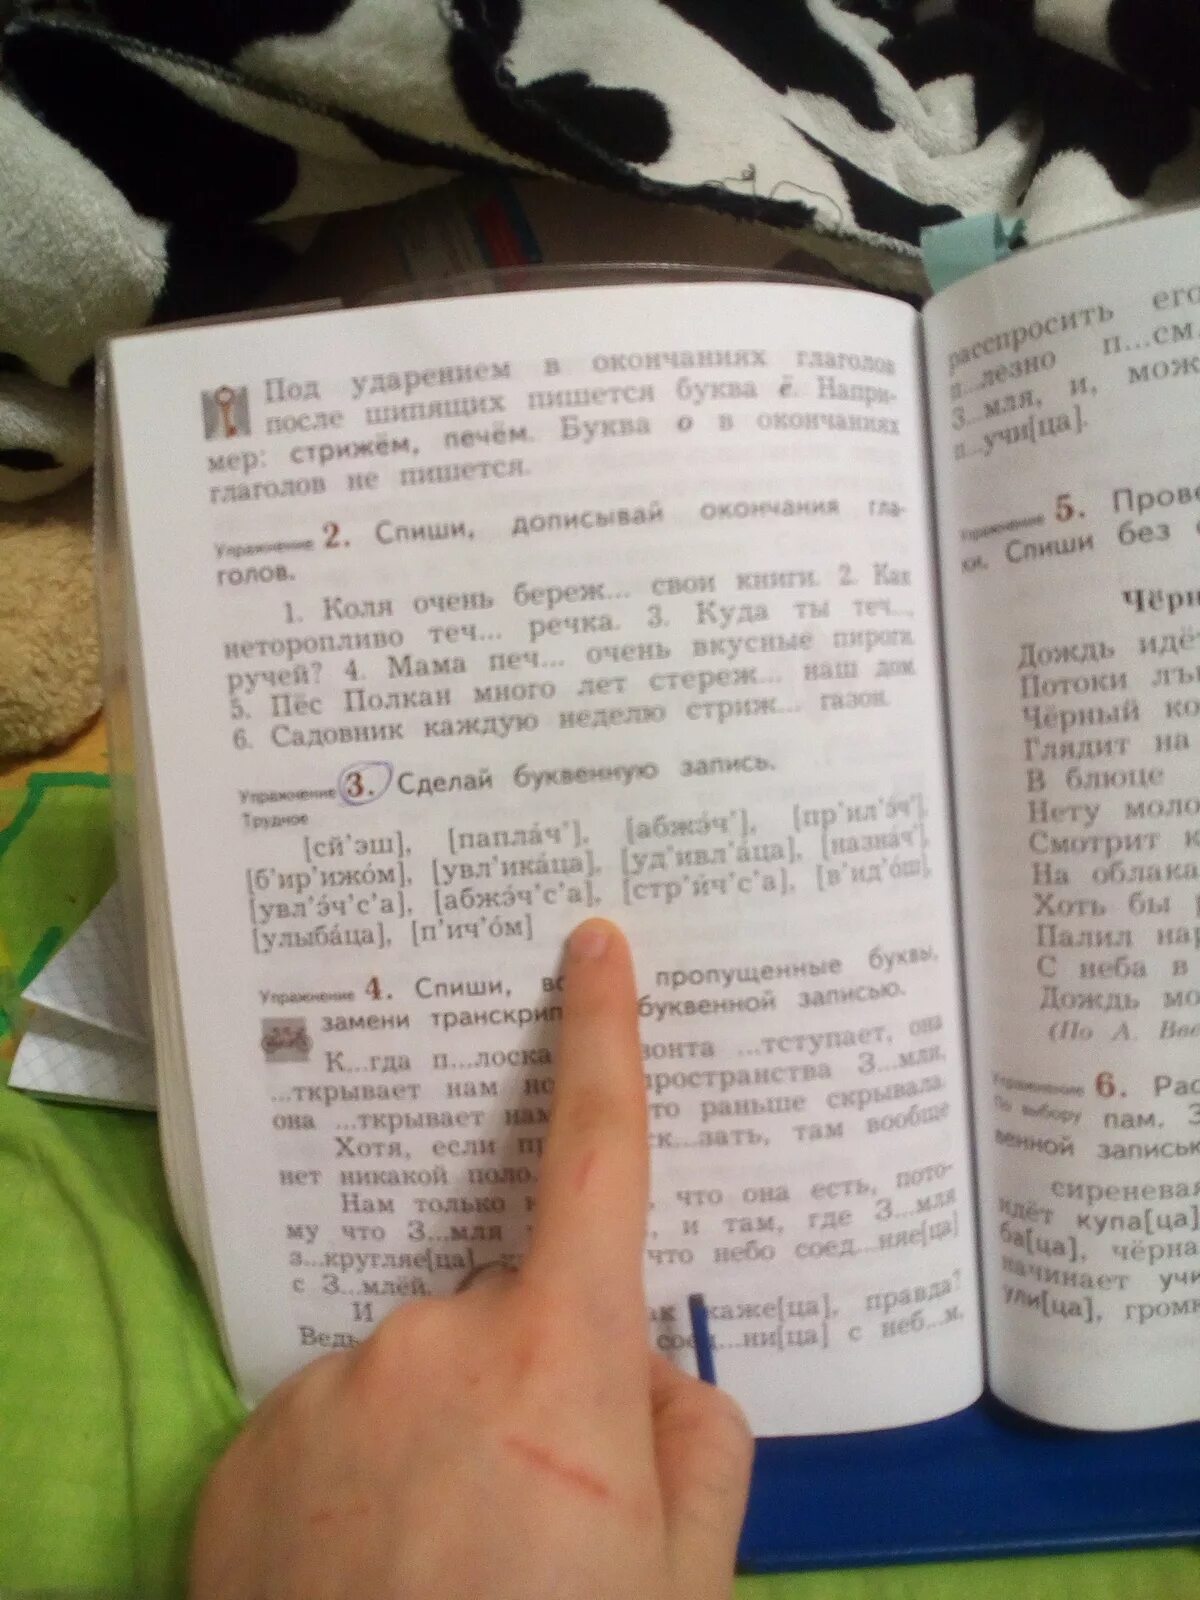 Под ударением в окончаниях глаголов
после шипящих пишется буква ё. Напри-
мер: стрижём, печём. Буква о в окончаниях
глаголов не пишется.
Упражнение 2. Спиши, дописывай окончания гла-
голов.
1. Коля очень береж... свои книги. 2. Как
неторопливо теч... речка. 3. Куда ты теч...,
ручей? 4. Мама печ... очень вкусные пироги.
5. Пёс Полкан много лет стереж... наш дом.
6. Садовник каждую неделю стриж... газон.
Упражнение 3. Сделай буквенную запись.
Трудное
[сй'эш], [папла́ч'], [абжэ́ч'], [пр'ил'э́ч'],
[б'ир'ижо́м], [увл'ика́ца], [уд'ивл'а́ца], [назна́ч'],
[увл'э́ч'с'а], [абжэ́ч'с'а], [стр'и́ч'с'а], [в'ид'о́ш],
[улыба́ца], [п'ич'о́м]
Упражнение 4. Спиши, пропущенные буквы,
замени транскрип буквенной записью.
К...гда п...лоска зонта ...тступает, она
...ткрывает нам но пространства З...мля,
она ...ткрывает нам то раньше скрывала.
Хотя, если пр ск...зать, там вообще
нет никакой поло
Нам только что она есть, пото-
му что З...мля и там, где З...мля
з...кругляе[ца] что небо соед...няе[ца]
с З...млёй.
И ак каже[ца], правда?
Ведь соед...ни[ца] с неб...м,
расспросить его
п...лезно п...см
З...мля, и, мож
п...учи[ца].
Упражнение 5. Прове
ки. Спиши без
Чёрн
Дождь идё
Потоки лъ
Чёрный ко
Глядит на
В блюце
Нету моло
Смотрит к
На облака
Хоть бы р
Палил нар
С неба в
Дождь мо
(По А. Вве
Упражнение 6. Рас
По выбору пам. З
венной записьк
сиреневая
идёт купа[ца]
ба[ца], чёрна
начинает учи
ули[ца], громк